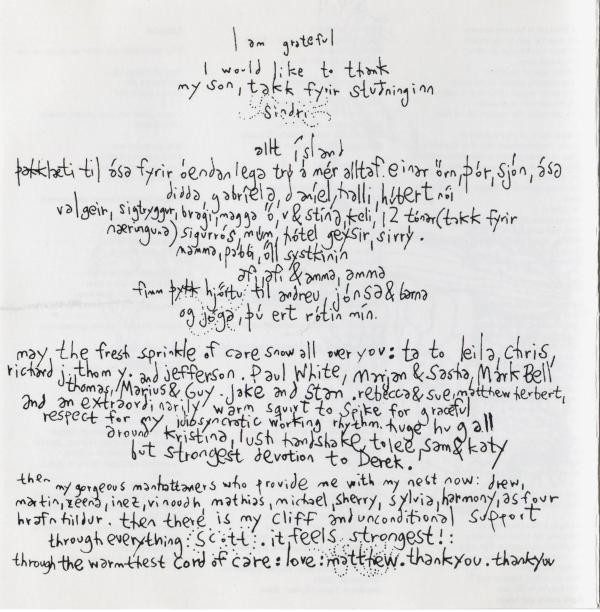 I am grateful
I would like to thank
my son, takk fyrir stuðninginn
sindri
allt ísland
þakklæti til ósa fyrir óendanlega trú á mér alltaf. einar örn, þór, sjón, ása
didda, gabríela, daníel, halli, húbert nói
valgeir, sigtryggur, bragi, magga ö, v & stína, keli, 12 tónar (takk fyrir
næringuna) sigurrós, múm, hótel geysir, sirrý.
mamma, pabbi, öll systkinin
afi, afi & amma, amma
fimm hjörtu til andreu, jónsa & barna
og jóga, þú ert rótin mín.
may the fresh sprinkle of care snow all over you: ta to leila, chris,
richard j, thom y. and jefferson. Paul White, Marjan & Sasha, Mark Bell
thomas, Marius & Guy. Jake and Stan. rebecca & sue, matthew herbert,
and an extraordinarily warm squirt to Spike for graceful
respect for my iubsyncratic working rhythm. huge hug all
around kristina, lush handshake to lee, sam & katy
but strongest devotion to Derek.
then my gorgeous manhattaners who provide me with my nest now: drew,
martin, zeena, inez, vinoodh, mathias, michael, sherry, sylvia, harmony, asfour
hrafnhildur. then there is my cliff and unconditional support
through everything: Scott. it feels strongest!:
through the warmthest cord of care: love: matthew. thankyou. thankyou